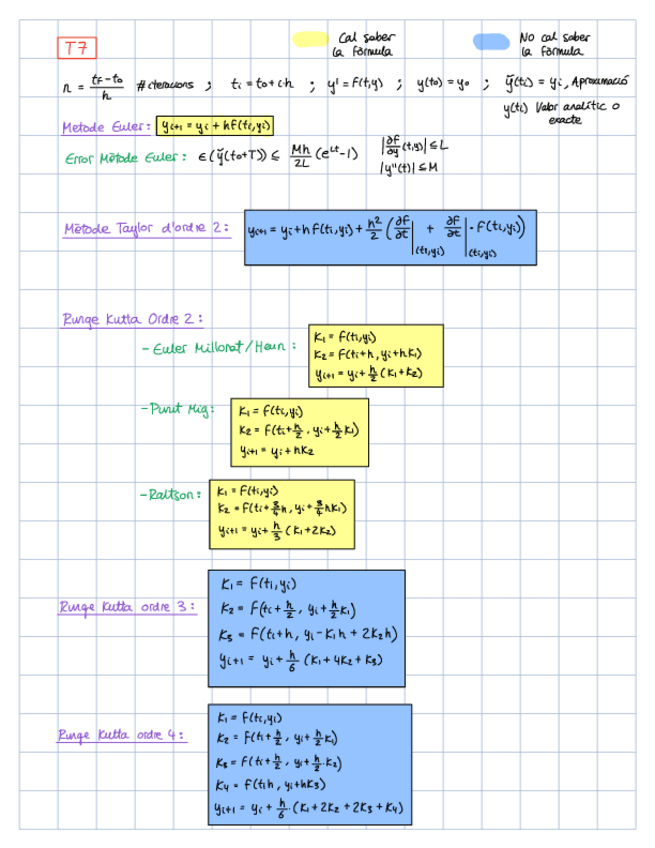 Cal saber
la fórmula
No cal saber
la fórmula
T7
n = (tF - t0)/h # iteracions ; ti = t0 + i·h ; y' = f(t,y) ; y(t0) = y0 ; y̌(ti) = yi, Aproximació
y(ti) Valor analític o
exacte
Metode Euler: yi+1 = yi + hf(ti,yi)
Error Mètode Euler: ϵ(y̌(t0+T)) ≤ Mh/2L (e^LT - 1) |∂f/∂y (t,y)| ≤ L
|y''(t)| ≤ M
Mètode Taylor d'ordre 2: yi+1 = yi + hf(ti,yi) + h²/2 (∂f/∂t|(ti,yi) + ∂f/∂t|(ti,yi) · f(ti,yi))
Runge Kutta Ordre 2:
- Euler Millorat/Heun:
K1 = f(ti,yi)
K2 = f(ti+h, yi+hK1)
yi+1 = yi + h/2 (K1+K2)
- Punt Mig:
K1 = f(ti,yi)
K2 = f(ti+h/2, yi+h/2 K1)
yi+1 = yi + hK2
- Raltson:
K1 = f(ti,yi)
K2 = f(ti+3/4h, yi+3/4hK1)
yi+1 = yi + h/3 (K1+2K2)
Runge Kutta ordre 3:
K1 = f(ti,yi)
K2 = f(ti+h/2, yi+h/2 K1)
K3 = f(ti+h, yi-K1h+2K2h)
yi+1 = yi + h/6 (K1+4K2+K3)
Runge Kutta ordre 4:
K1 = f(ti,yi)
K2 = f(ti+h/2, yi+h/2 K1)
K3 = f(ti+h/2, yi+h/2·K2)
K4 = f(tih, yi+hK3)
yi+1 = yi + h/6·(K1+2K2+2K3+K4)